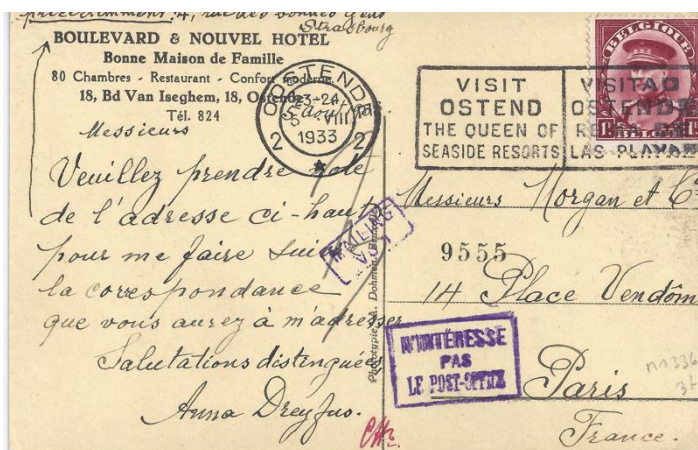 précédemment 4, rue des Bonnes Gens
Strasbourg
BOULEVARD & NOUVEL HOTEL
Bonne Maison de Famille
80 Chambres - Restaurant - Confort moderne
18, Bd Van Iseghem, 18, Ostende
Tél. 824
5 août
Messieurs
Veuillez prendre note
de l'adresse ci-haut
pour me faire suivre
la correspondance
que vous aurez à m'adresser
Salutations distinguées
Anna Dreyfus.
OOSTENDE
23-24
5 VIII
1933
2 2
VISIT
OSTEND
THE QUEEN OF
SEASIDE RESORTS
VISITAD
OSTENDE
REINA DE
LAS PLAYAS
BELGIQUE
MAILING
Phototypie A. Dohmen, Bruxelles
Messieurs Morgan et Cie
9555
14 Place Vendôm
N'INTÉRESSE
PAS
LE POST-OFFICE
Paris
France.